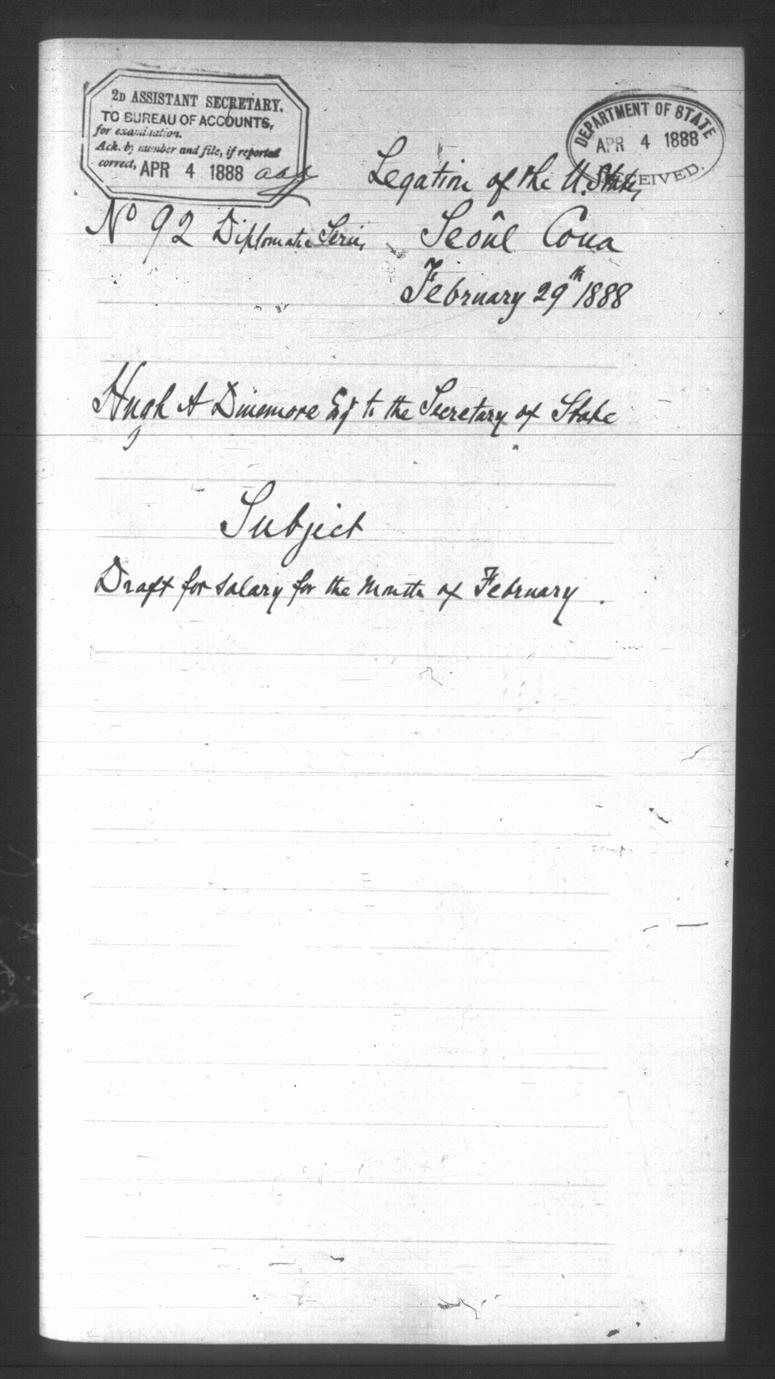 2D ASSISTANT SECRETARY.
TO BUREAU OF ACCOUNTS,
for examination.
Ack. by number and file, if reported
correct, APR 4 1888 aaa
DEPARTMENT OF STATE
APR 4 1888
RECEIVED.
Legation of the U. States
No 92 Diplomatic Series
Seoûl Corea
February 29th 1888
Hugh A Dinsmore Esqr to the Secretary of State
Subject
Draft for salary for the Month of February.